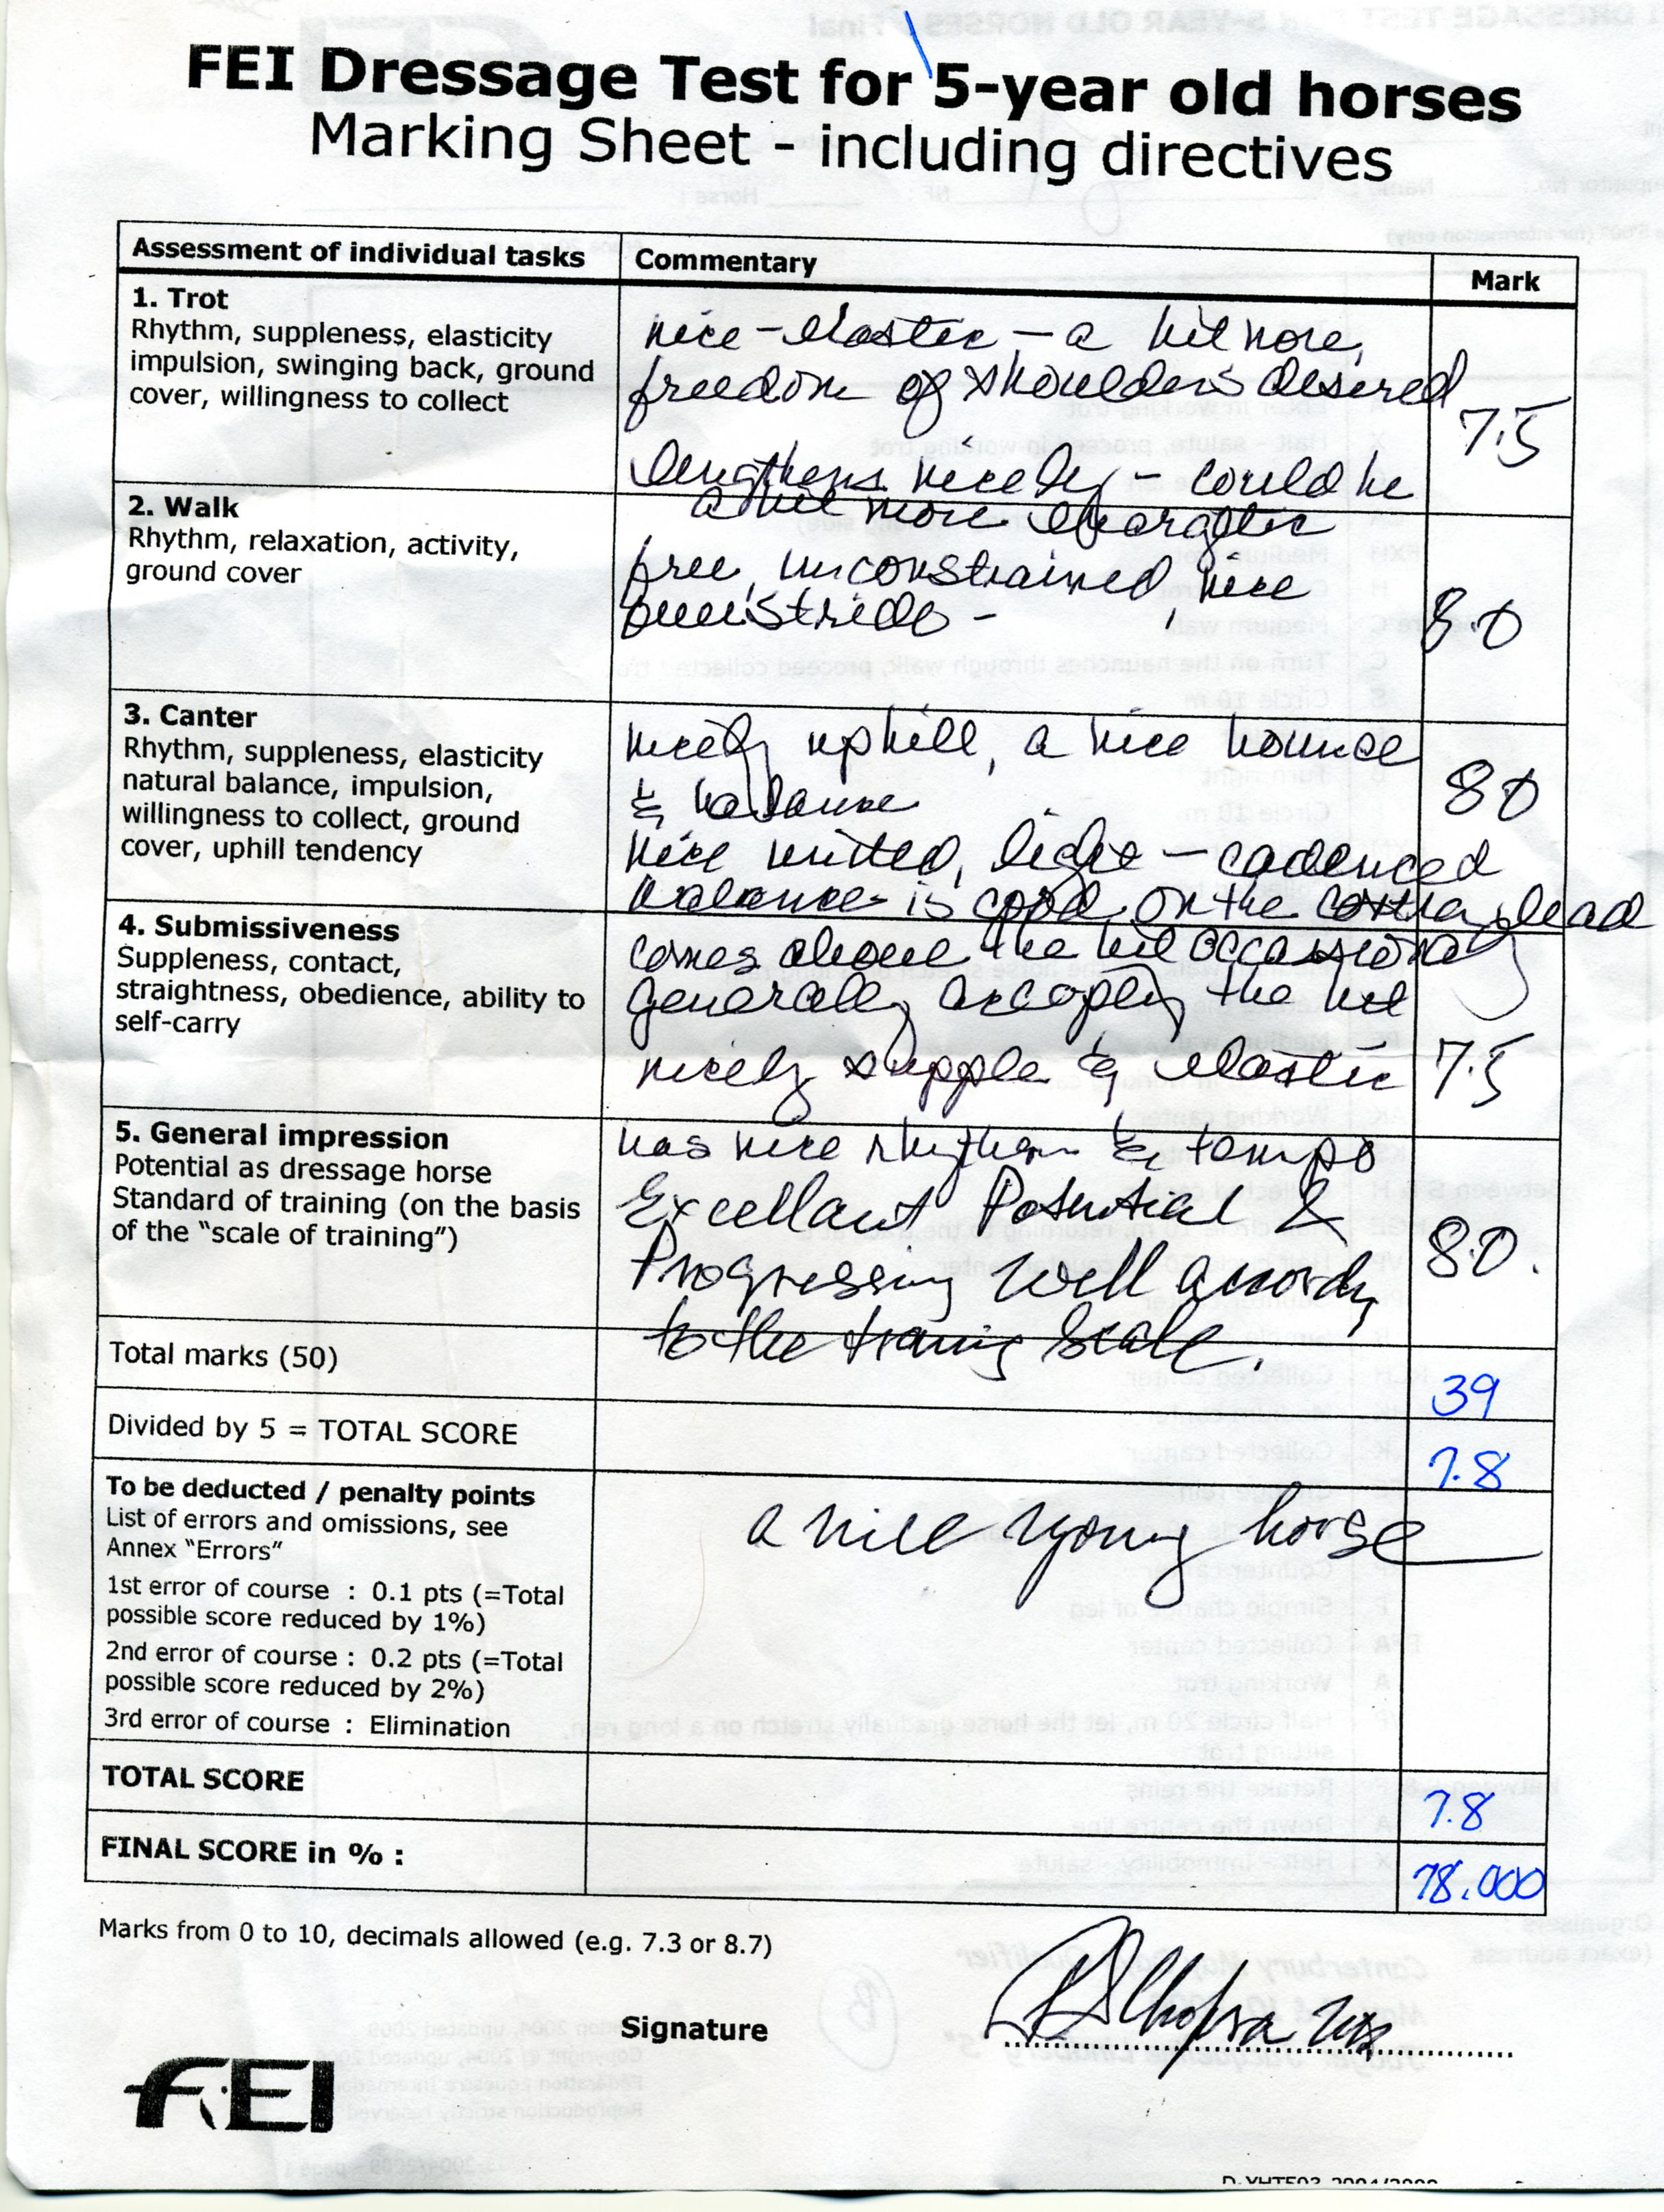 FEI Dressage Test for 5-year old horses
Marking Sheet - including directives
Assessment of individual tasks
Commentary
Mark
1. Trot
Rhythm, suppleness, elasticity
impulsion, swinging back, ground
cover, willingness to collect
nice - elastic - a bit more
freedom of shoulders desired
lengthens nicely - could be
a bit more energetic
7.5
2. Walk
Rhythm, relaxation, activity,
ground cover
free, unconstrained, nice
overstride -
8.0
3. Canter
Rhythm, suppleness, elasticity
natural balance, impulsion,
willingness to collect, ground
cover, uphill tendency
nicely uphill, a nice bounce
& balance
nice - cadenced
balance is good on the lead
80
4. Submissiveness
Suppleness, contact,
straightness, obedience, ability to
self-carry
comes above the bit
generally the bit
nicely supple & elastic
7.5
5. General impression
Potential as dressage horse
Standard of training (on the basis
of the “scale of training”)
has nice rhythm & tempo
Excellant Potential &
Progressing well
to the scale.
8.0.
Total marks (50)
39
Divided by 5 = TOTAL SCORE
7.8
To be deducted / penalty points
List of errors and omissions, see
Annex “Errors”
1st error of course : 0.1 pts (=Total
possible score reduced by 1%)
2nd error of course : 0.2 pts (=Total
possible score reduced by 2%)
3rd error of course : Elimination
a nice young horse
TOTAL SCORE
7.8
FINAL SCORE in % :
78.000
Marks from 0 to 10, decimals allowed (e.g. 7.3 or 8.7)
Signature
FEI